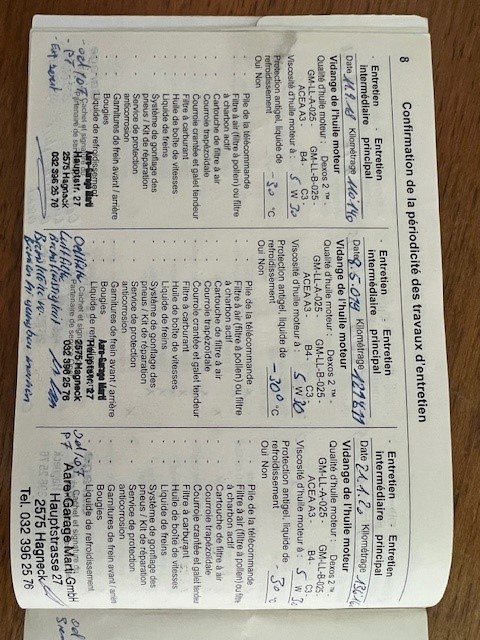 8
Confirmation de la périodicité des travaux d'entretien
- Entretien - Entretien
intermédiaire principal
Date 11.9.18 Kilométrage
Vidange de l'huile moteur
Qualité d'huile moteur : Dexos 2 ™ -
GM-LL-A-025 - GM-LL-B-025 -
ACEA A3 - B4- C3 -
Viscosité d'huile moteur à : 5 W 30
Protection antigel, liquide de
refroidissement - 30 °C
Oui Non
- - Pile de la télécommande
- - Filtre à air (filtre à pollen) ou filtre
à charbon actif
- - Cartouche de filtre à air
- - Courroie trapézoïdale
- - Courroie crantée et galet tendeur
- - Filtre à carburant
- - Huile de boîte de vitesses
- - Liquide de freins
- - Système de gonflage des
pneus / Kit de réparation
- - Service de protection
anticorrosion
- - Garnitures de frein avant / arrière
- - Bougies
- - Liquide de refroidissement
Cachet et signature du
Partenaire de Service
Aare-Garage Marti
Hauptstr. 27
2575 Hagneck
032 396 25 76
- Entretien - Entretien
intermédiaire principal
Date Kilométrage
Vidange de l'huile moteur
Qualité d'huile moteur : Dexos 2 ™ -
GM-LL-A-025 - GM-LL-B-025 -
ACEA A3 - B4- C3 -
Viscosité d'huile moteur à : 5 W 30
Protection antigel, liquide de
refroidissement - 30 °C
Oui Non
- - Pile de la télécommande
- - Filtre à air (filtre à pollen) ou filtre
à charbon actif
- - Cartouche de filtre à air
- - Courroie trapézoïdale
- - Courroie crantée et galet tendeur
- - Filtre à carburant
- - Huile de boîte de vitesses
- - Liquide de freins
- - Système de gonflage des
pneus / Kit de réparation
- - Service de protection
anticorrosion
- - Garnitures de frein avant / arrière
- - Bougies
- - Liquide de
Cachet et signature
Partenaire de
Aare-Garage Marti
Hauptstr. 27
2575 Hagneck
032 396 25 76
- Entretien - Entretien
intermédiaire principal
Date 21.1.20 Kilométrage
Vidange de l'huile moteur
Qualité d'huile moteur : Dexos 2 ™ -
GM-LL-A-025 - GM-LL-B-025 -
ACEA A3 - B4- C3 -
Viscosité d'huile moteur à : 5 W 30
Protection antigel, liquide de
refroidissement - 30 °C
Oui Non
- - Pile de la télécommande
- - Filtre à air (filtre à pollen) ou
à charbon actif
- - Cartouche de filtre à air
- - Courroie trapézoïdale
- - Courroie crantée et galet
- - Filtre à carburant
- - Huile de boîte de vitesses
- - Liquide de freins
- - Système de gonflage des
pneus / Kit de réparation
- - Service de protection
anticorrosion
- - Garnitures de frein avant
- - Bougies
- - Liquide de refroidissement
Cachet et signature
Aare-Garage Marti GmbH
Hauptstrasse 27
2575 Hagneck
Tel. 032 396 25 76